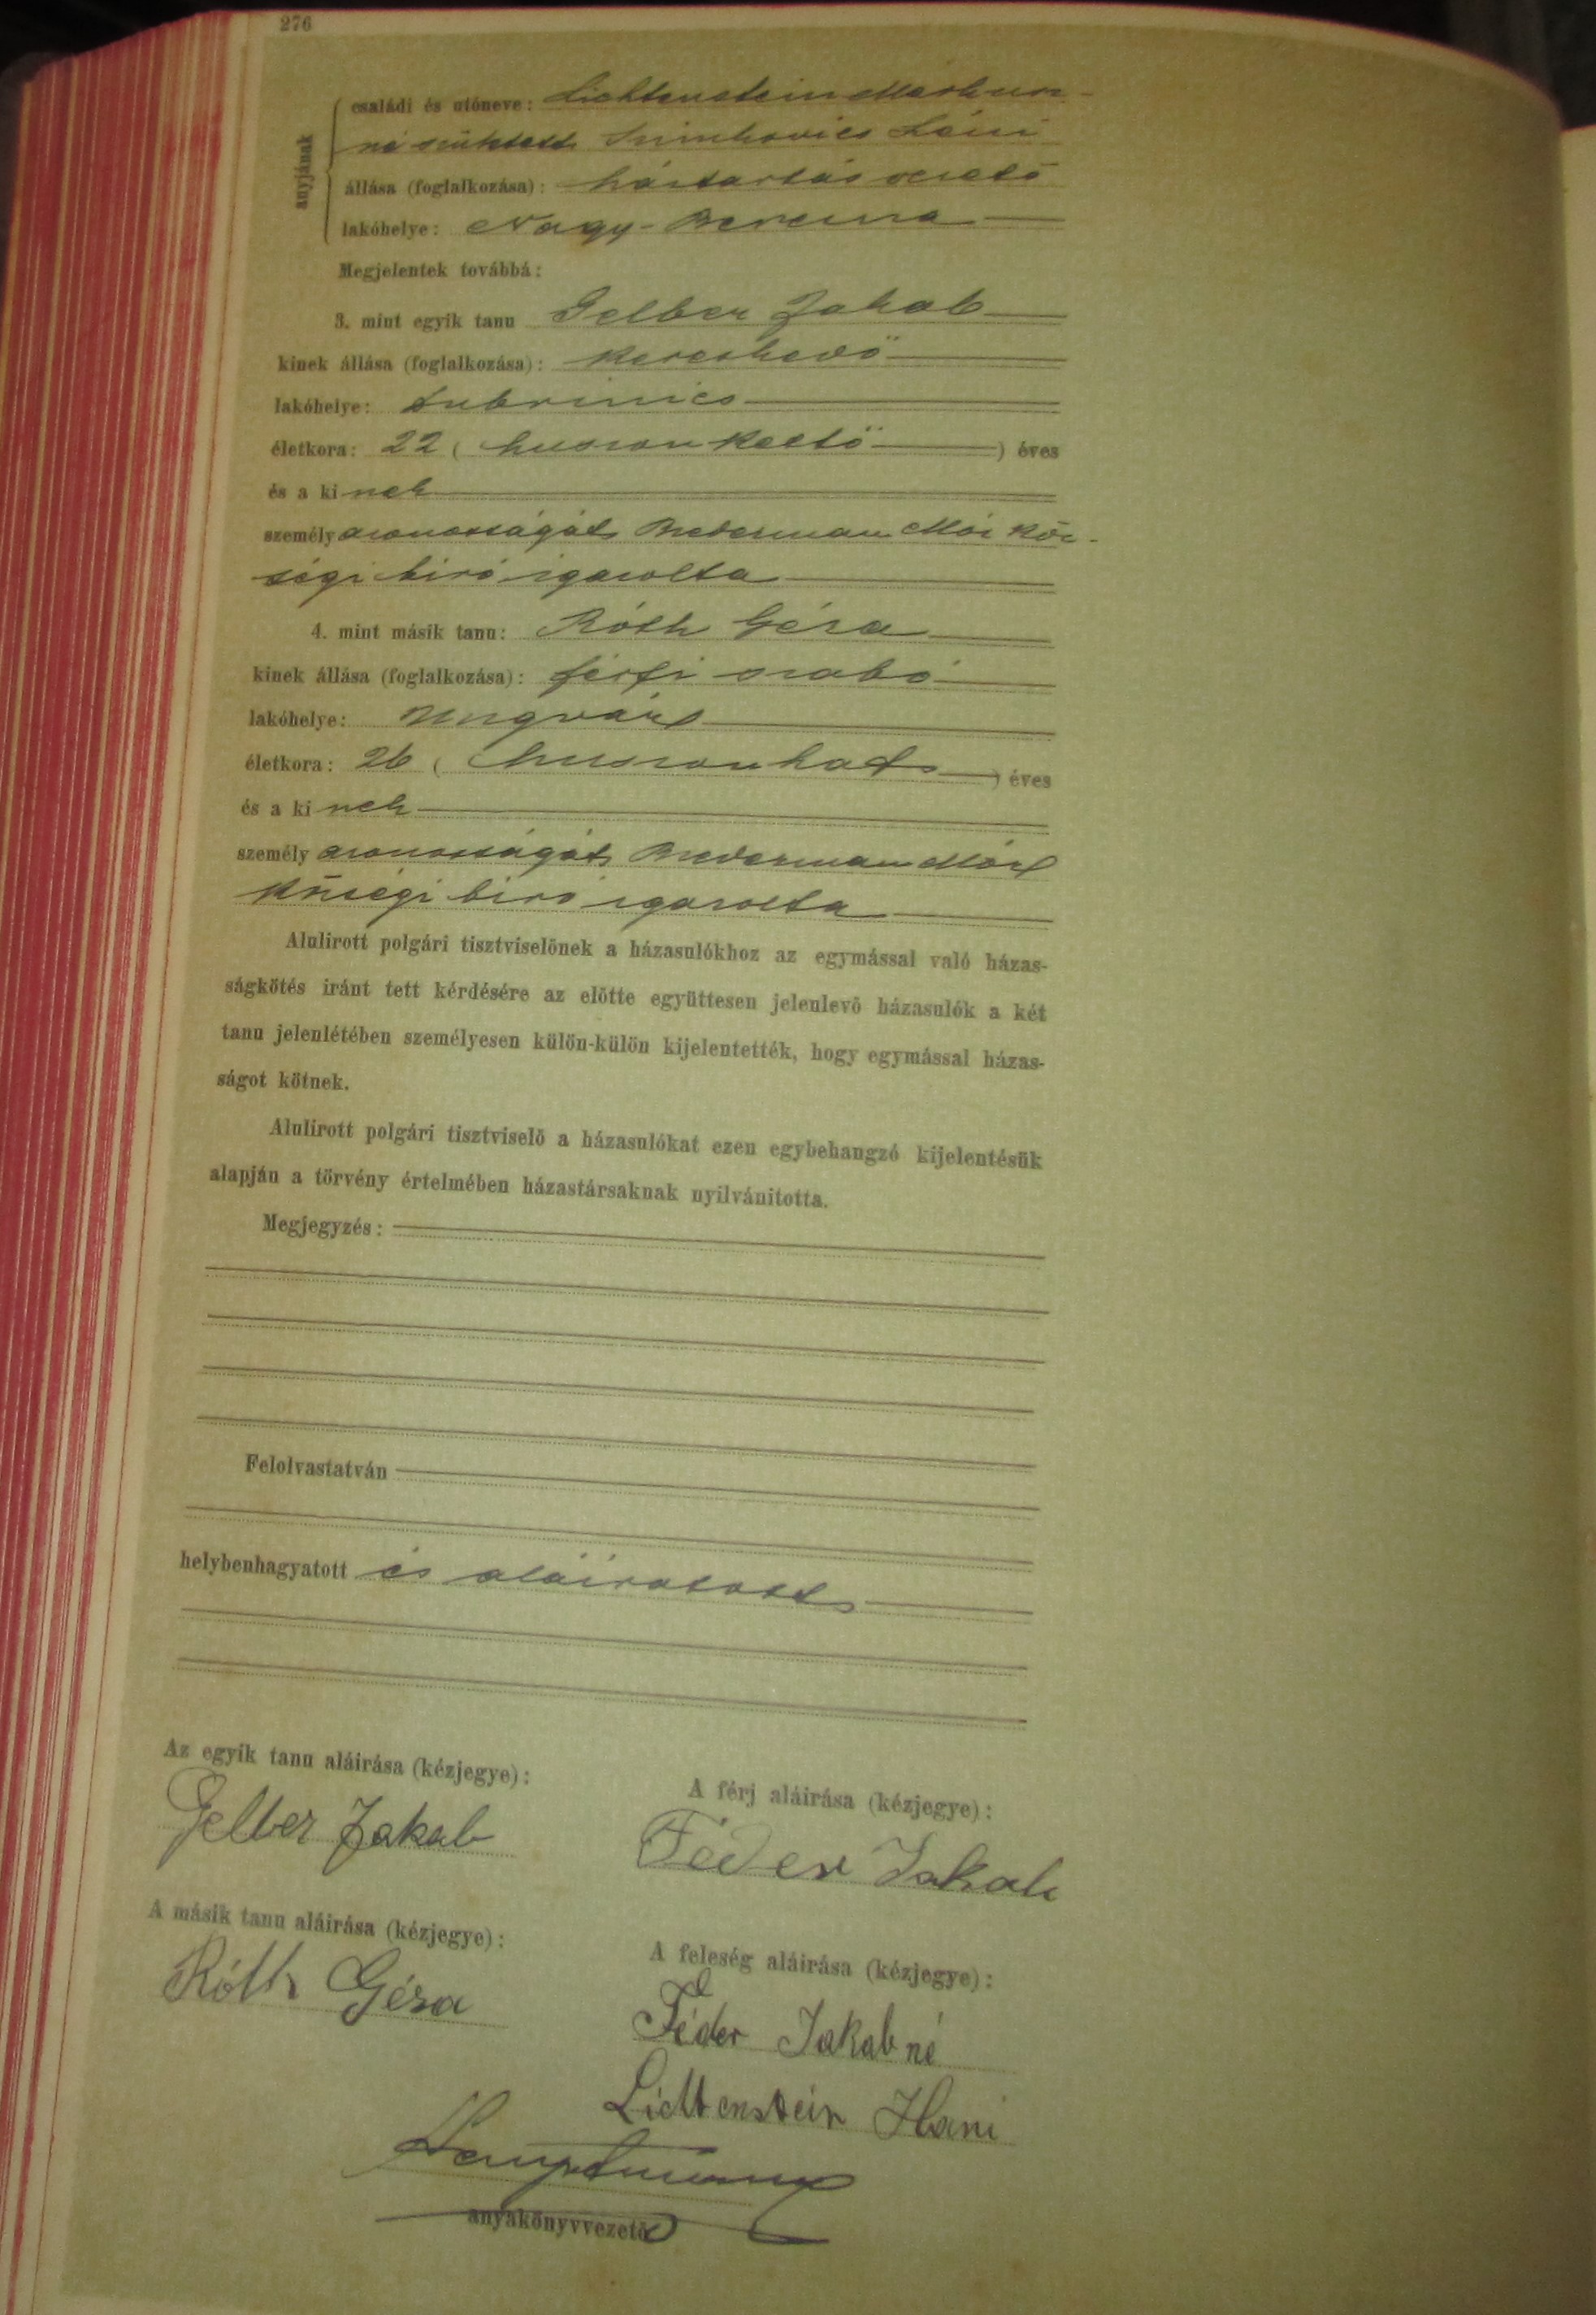 276
anyjának
családi és utóneve: Lichtenstein Markus-
né született Simkovics Láni
állása (foglalkozása): háztartás vezető
lakóhelye: Nagy-Berezna
Megjelentek továbbá:
3. mint egyik tanu Gelber Jakab
kinek állása (foglalkozása): kereskedő
lakóhelye: Dubrinics
életkora: 22 (huszonkettő) éves
és a kinek
személyazonosságát Brederman Mór köz-
ségi biró igazolta
4. mint másik tanu: Róth Géza
kinek állása (foglalkozása): férfi szabó
lakóhelye: Ungvár
életkora: 26 (huszonhat) éves
és a kinek
személyazonosságát Brederman Mór
községi biró igazolta
Alulirott polgári tisztviselőnek a házasulókhoz az egymással való házas-
ságkötés iránt tett kérdésére az előtte együttesen jelenlevő házasulók a két
tanu jelenlétében személyesen külön-külön kijelentették, hogy egymással házas-
ságot kötnek.
Alulirott polgári tisztviselő a házasulókat ezen egybehangzó kijelentésük
alapján a törvény értelmében házastársaknak nyilvánitotta.
Megjegyzés:
Felolvastatván
helybenhagyatott és aláiratott
Az egyik tanu aláirása (kézjegye):
Gelber Jakab
A férj aláirása (kézjegye):
Féder Jakab
A másik tanu aláirása (kézjegye):
Róth Géza
A feleség aláirása (kézjegye):
Féder Jakabné
Lichtenstein Hani
anyakönyvvezető